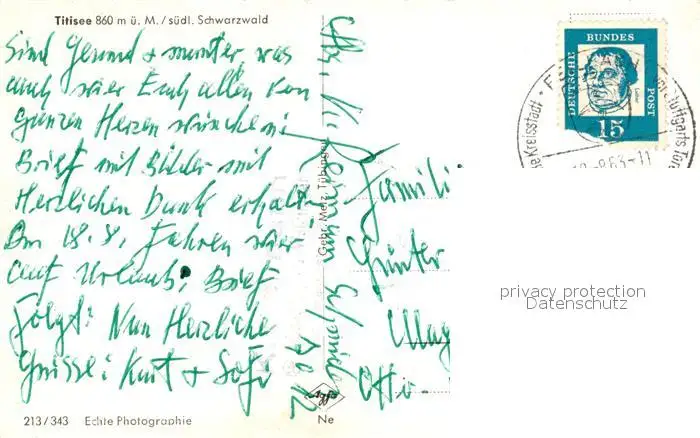 Titisee 860 m ü. M. / südl. Schwarzwald
Sind Gesund + munter, was
auch wier Euch allen von
ganzen Herzen wünschen
Brief mit Bilder mit
Herzlichen Dank erhalt.
Am 18.8. Fahren wier
auf Urlaub, Brief
Folgt! Nun Herzliche
Grüsse: Kurt + Sofi
213/343 Echte Photographie
Gebr. Metz Tübingen
Agfa
Ne
DEUTSCHE BUNDES POST
15
Kreisstadt
vor Stuttgarts Tore
8.63-11
Famili
Günter
Otto-
privacy protection
Datenschutz